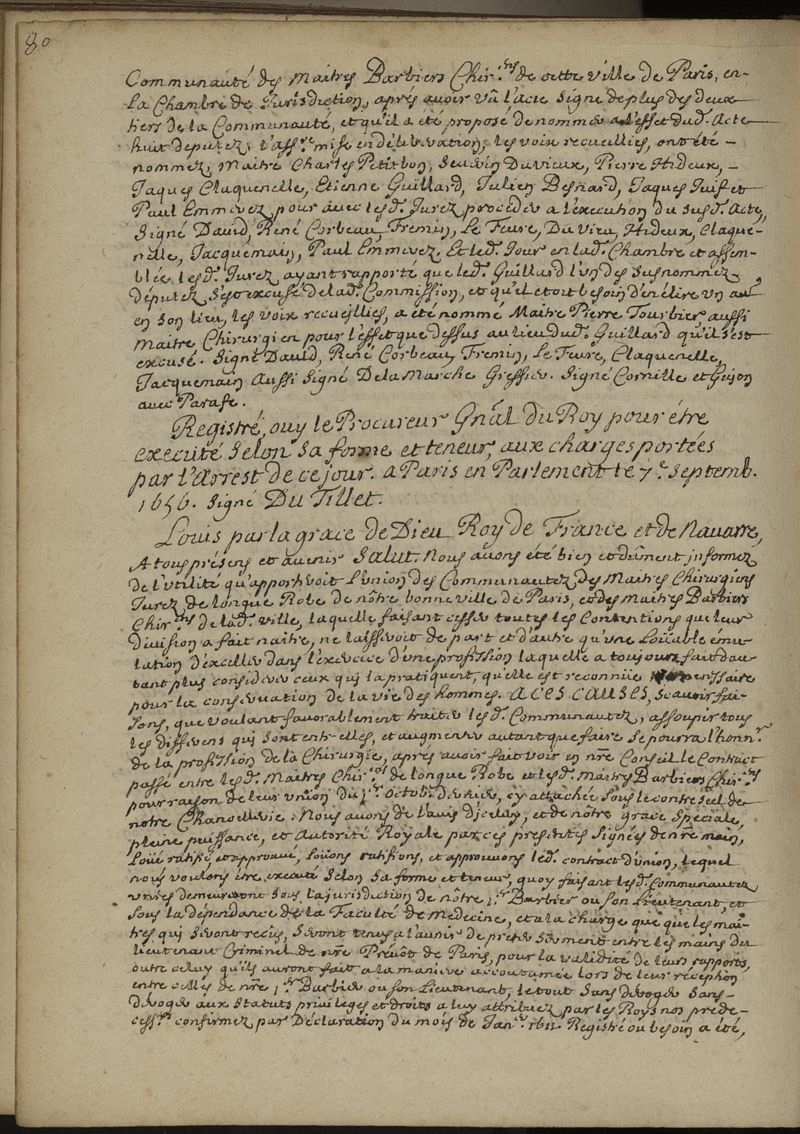 80
Communauté des Maitres Barbiers Chir.ens de cette ville de Paris, en-
La Chambre de Jurisdiction, aprés avoir vû l'acte signé de plus des deux
tiers de la Communauté, et qu'il a été proposé de nommer a l'effet dud. Acte
huit deputez, l'aff.re mise en déliberation, les voix recueillies, ont été
nommez, Maitre Charles Petitbon, Seuvin Duvieux, Pierre Hideux,
Jaques Claquenelle, Etienne Guillard, Julien Besnard, Jaques Juif et
Paul Emmerez pour avec lesd. Jurez proceder a l'execution du susd. Acte,
Signé David, René Corbeau, Fremin, Le Feure, Du Vieu, Hideux, Claque-
nelle, Jacquemain, Paul Emmerez. Et led. Jour en lad. Chambre et assem-
blée, lesd. Jurez ayant rapporté que led. Guillard l'un des susnommez
députez s'est excusé de lad. Commission, et qu'il etoit besoin d'en élire un au
en son lieu, les voix recueillies, a été nommé Maitre Pierre Tourbier aussi
Maitre Chirurgien pour l'effet que dessus au lieu dud. Guillard qu'il s'est
excusé. Signé David, René Corbeau, Fremin, Le Feure, Claquenelle,
Jacquemain Aussi Signé De la Marche Greffier. Signé Cornille et Gujon
avec Parafe.
Registré, ouy le Procureur Gnâl du Roy pour étre
executé selon sa forme et teneur, aux charges portées
par l'Arrest de ce jour. a Paris en Parlement le 7.e Septemb.
1656. Signé Du Tillet.
Louis par la grace de Dieu Roy de France et de Navarre,
A tous présens et avenir Salut. Nous avons été bien et düment informez
de l'utilité qu'apporteroit l'union des Communautez des Maitres Chirurgiens
Jurez de longue Robe de nôtre bonne ville de Paris, et des Maitres Barbiers
Chir.ens de lad. ville, laquelle faisant cesser toutes les Contentions que leur
Division a fait naitre, ne laisseroit de part et d'autre qu'une loüable ému-
lation d'exceller dans l'exercice d'une profession laquelle a toujours fait d'au
tant plus considerer ceux qui la pratiquent, qu'elle est reconnüe necessaire
pour la conservation de la vie des hommes. A CES CAUSES, Scavoir fai-
sons, que voulant favorablement traiter lesd. Communautez, assoupir tous
les differens qui sont entr-elles, et augmenter autant que faire se pourra l'honn.r
de la profession de la Chirurgie, aprés avoir fait voir en nre Conseil le Contract
passé entre lesd. Maitres Chir.ens de longue Robe et lesd. Maitres Barbiers Chir.ens
pour raison de leur union du j.er Octob. dernier, cy attachée sous le contre scel de
notre Chancellerie. Nous avons de l'avis d'jcelluy, et de notre grace spéciale,
pleine puissance, et autorité Royale par ces presentes signées de nre main,
Loüé ratifié et approuvé, loüons ratifions, et approuvons led. contract d'union, lequel
nous voulons étre executé selon sa forme et teneur, quoy faisant lesd. Communautez
unies demeureront sous la jurisdiction de nôtre j.er Barbier ou son Lieutenant, et
sous la dépendance de la Faculté de Medecine, et a la charge que que les mai-
tres qui seront reçus, seront tenus a l'avenir de préter serment entre les mains du
lieutenant Criminel de nre Prévôt de Paris, pour la validité de leurs rapports,
outre celuy qu'ils auront fait a la maniere accoutumée lors de leur réception
entre celles de nre j.er Barbier ou son Lieutenant, le tout sans déroger Sans-
déroger aux Statuts privileges et droits a luy attribuez par les Roys nos préde-
cess.rs confirmez par Déclaration du mois de Jan.er Registré ou besoin a été,